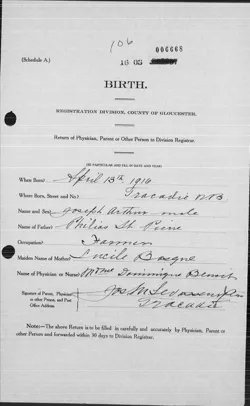 106
006668
(Schedule A.)
16 03
BIRTH.
REGISTRATION DIVISION, COUNTY OF GLOUCESTER.
Return of Physician, Parent or Other Person to Division Registrar.
(BE PARTICULAR AND FILL IN DATE AND YEAR)
When Born? April 13th 1914
Where Born, Street and No? Tracadie N B
Name and Sex? Joseph Arthur male
Name of Father? Philias St Pierre
Occupation? Farmer
Maiden Name of Mother? Lucile Basque
Name of Physician or Nurse? Mme Dominique Benoit
Signature of Parent, Physician
or other Person, and Post
Office Address
Jos M Levasseur
Tracadie
NOTE:—The above Return is to be filled in carefully and accurately by Physician, Parent or
other Person and forwarded within 30 days to Division Registrar.